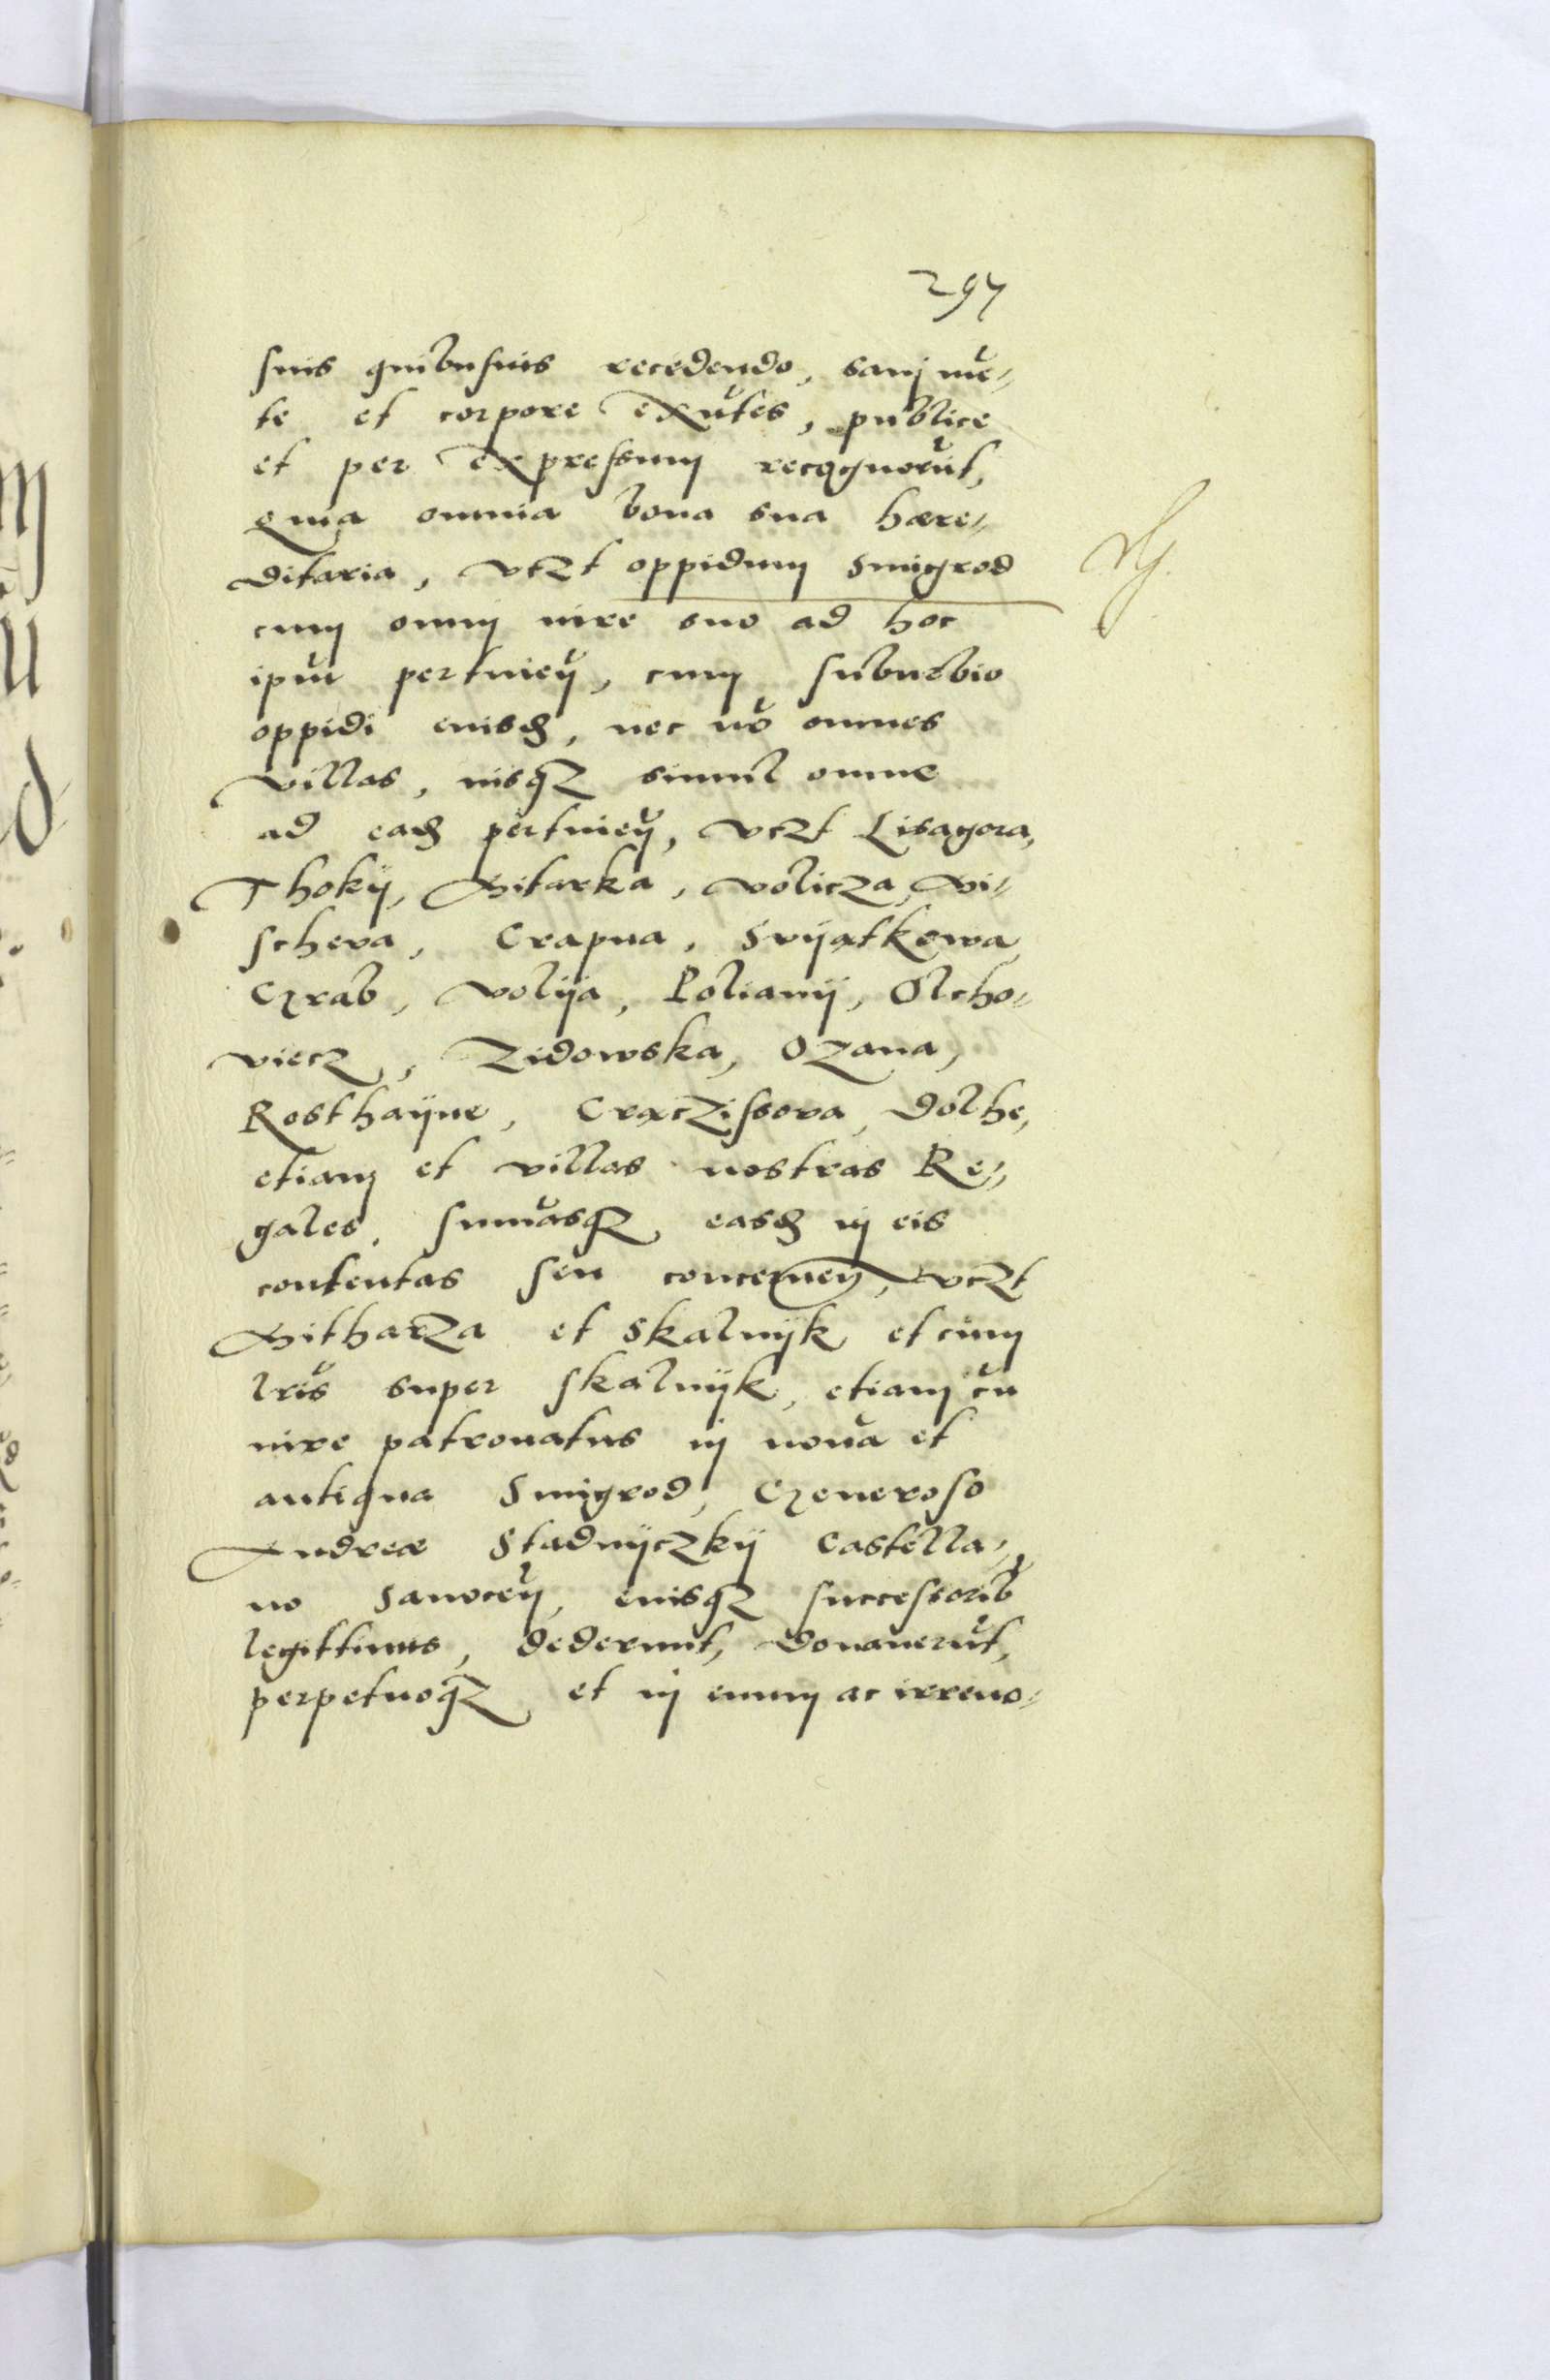 297
suis quibusuis recedendo, sani mē-
te et corpore exn̄tes, publice
et per expressum recognorūt,
quia omnia bona sua hære-
ditaria, vtzt oppidum Smigrod
cum omni iure suo ad hoc
ip̄m pertineń, cum suburbio
oppidi eiusd, nec nō omnes
villas, iusqz simul omne
ad ead pertineń, vtzt Lisagora,
Thokÿ, Mitarka, volicza, vi-
schera, Crapna, Svÿatkowa
Grab, volÿa, Polianÿ, Olcho-
viecz, Zidowska, Ozana,
Rosthaÿne, Craczissova, Dolhe,
etiam et villas nostras Re-
gales, sum̄asqz easd in eis
contentas seu conterneń, vtzt
Mitharza et Skalnÿk et cum
lr̄is super skalnÿk, etiam cū
iure patronatus in noua et
antiqua Smigrod, Generoso
Andreæ Stadnÿczkÿ Castella-
no Sanoceń, eiusqz successorib
legittimis, dederunt, donauerūt,
perpetuoqz et in euum ac irreuo-